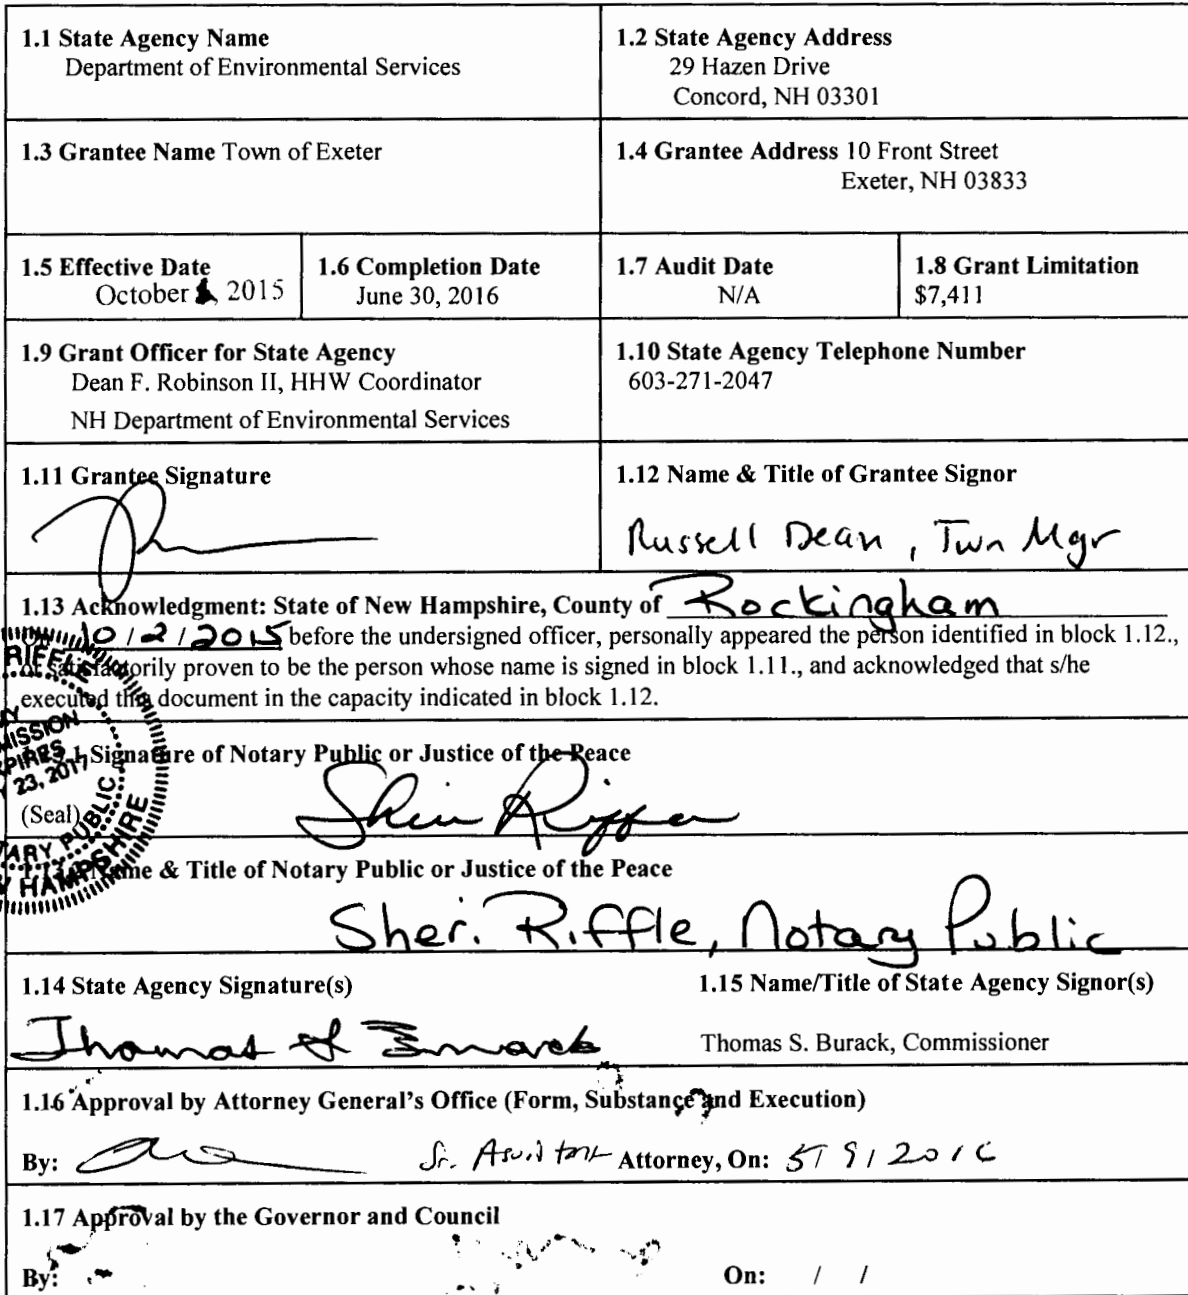 1.1 State Agency Name
Department of Environmental Services
1.2 State Agency Address
29 Hazen Drive
Concord, NH 03301
1.3 Grantee Name Town of Exeter
1.4 Grantee Address 10 Front Street
Exeter, NH 03833
1.5 Effective Date
October , 2015
1.6 Completion Date
June 30, 2016
1.7 Audit Date
N/A
1.8 Grant Limitation
$7,411
1.9 Grant Officer for State Agency
Dean F. Robinson II, HHW Coordinator
NH Department of Environmental Services
1.10 State Agency Telephone Number
603-271-2047
1.11 Grantee Signature
1.12 Name & Title of Grantee Signor
Russell Dean, Twn Mgr
1.13 Acknowledgment: State of New Hampshire, County of Rockingham
10/2/2015 before the undersigned officer, personally appeared the person identified in block 1.12.,
satisfactorily proven to be the person whose name is signed in block 1.11., and acknowledged that s/he
executed this document in the capacity indicated in block 1.12.
Signature of Notary Public or Justice of the Peace
(Seal)
Sheri Riffle
23, 2017
PUBLIC
HAMPSHIRE
Name & Title of Notary Public or Justice of the Peace
Sheri Riffle, Notary Public
1.14 State Agency Signature(s)
1.15 Name/Title of State Agency Signor(s)
Thomas S Burack
Thomas S. Burack, Commissioner
1.16 Approval by Attorney General's Office (Form, Substance and Execution)
By: Sr. Assistant Attorney, On: 5/9/2016
1.17 Approval by the Governor and Council
By: On: / /